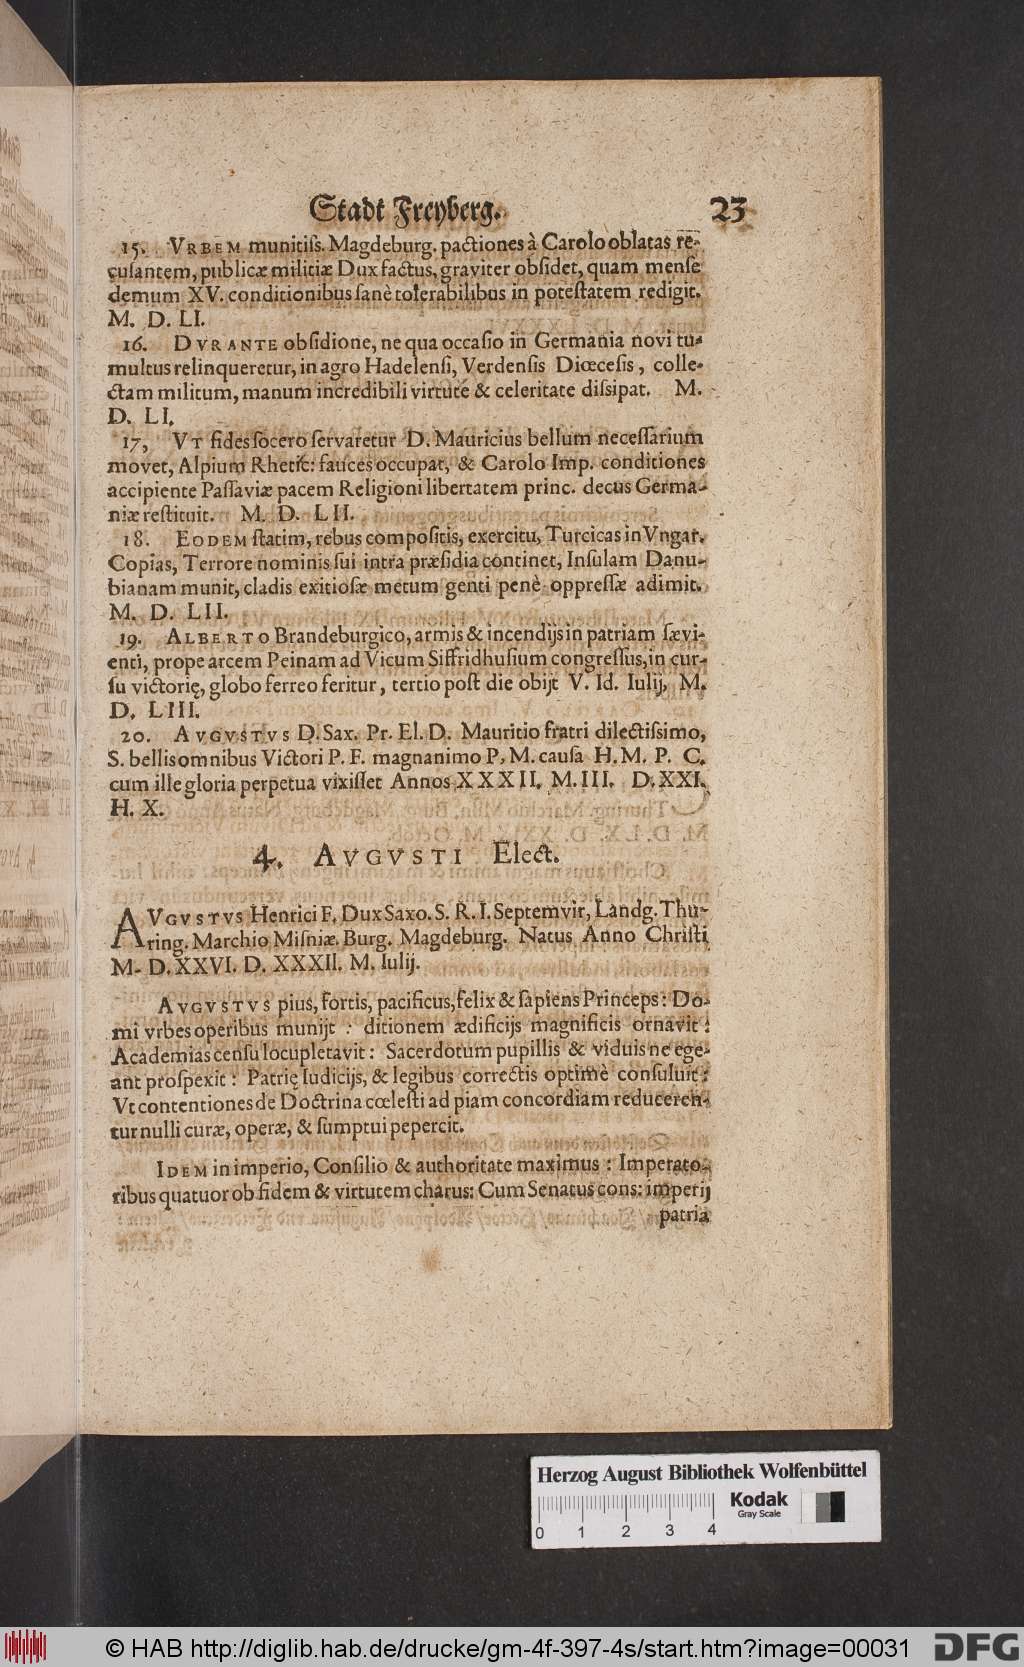 Stadt Freyberg. 23
15. VRBEM munitiſs. Magdeburg. pactiones à Carolo oblatas re-
cuſantem, publicæ militiæ Dux factus, graviter obſidet, quam menſe
demum XV. conditionibus ſanè tolerabilibus in poteſtatem redigit.
M. D. LI.
16. DVRANTE obſidione, ne qua occaſio in Germania novi tu-
multus relinqueretur, in agro Hadelenſi, Verdenſis Diœceſis, colle-
ctam militum, manum incredibili virtute & celeritate diſsipat. M.
D. LI.
17, VT fides ſocero ſervaretur D. Mauricius bellum neceſſarium
movet, Alpium Rhetic: fauces occupat, & Carolo Imp. conditiones
accipiente Paſſaviæ pacem Religioni libertatem princ. decus Germa-
niæ reſtituit. M. D. LII.
18. EODEM ſtatim, rebus compoſitis, exercitu, Turcicas in Vngar.
Copias, Terrore nominis ſui intra præſidia continet, Inſulam Danu-
bianam munit, cladis exitioſæ metum genti penè oppreſſæ adimit.
M. D. LII.
19. ALBERTO Brandeburgico, armis & incendijs in patriam ſævi-
enti, prope arcem Peinam ad Vicum Siffridhuſium congreſſus, in cur-
ſu victorię, globo ferreo feritur, tertio poſt die obijt V. Id. Iulij, M.
D. LIII.
20. AVGVSTVS D. Sax. Pr. El. D. Mauritio fratri dilectiſsimo,
S. bellis omnibus Victori P. F. magnanimo P. M. cauſa H. M. P. C.
cum ille gloria perpetua vixiſſet Annos XXXII. M. III. D. XXI.
H. X.
4. AVGVSTI Elect.
AVGVSTVS Henrici F. Dux Saxo. S. R. I. Septemvir, Landg. Thu-
ring. Marchio Miſniæ. Burg. Magdeburg. Natus Anno Chriſti
M. D. XXVI. D. XXXII. M. Iulij.
AVGVSTVS pius, fortis, pacificus, felix & ſapiens Princeps: Do-
mi vrbes operibus munijt : ditionem ædificijs magnificis ornavit :
Academias cenſu locupletavit : Sacerdotum pupillis & viduis ne ege-
ant proſpexit : Patrię Iudicijs, & legibus correctis optimè conſuluit :
Vt contentiones de Doctrina cœleſti ad piam concordiam reduceren-
tur nulli curæ, operæ, & ſumptui pepercit.
IDEM in imperio, Conſilio & authoritate maximus : Imperato-
ribus quatuor ob fidem & virtutem charus: Cum Senatus cons: imperij
patria
Herzog August Bibliothek Wolfenbüttel
Kodak
Gray Scale
0 1 2 3 4
© HAB http://diglib.hab.de/drucke/gm-4f-397-4s/start.htm?image=00031
DFG